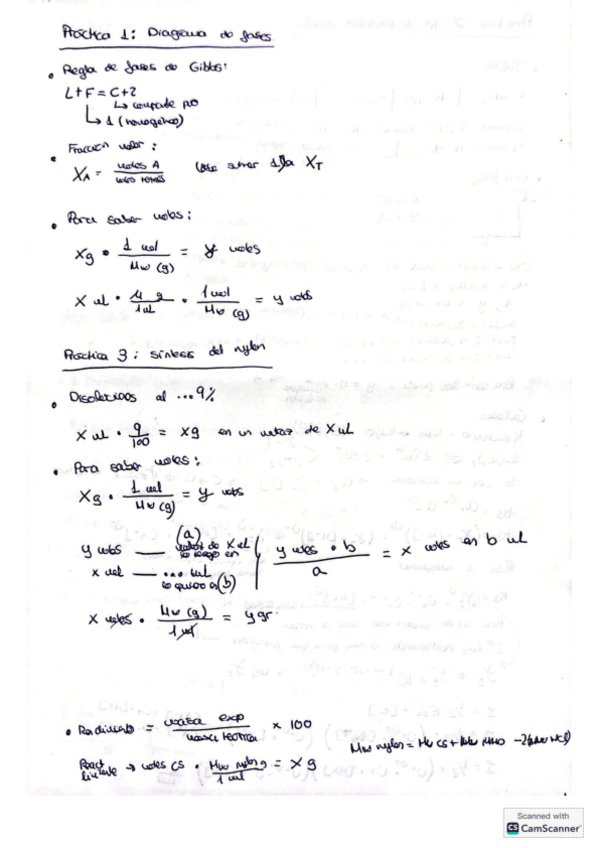 Práctica 1: Diagrama de fases
• Regla de fases de Gibbs:
L+F = C+2
↳ componente puro
↳ 1 (homogéneo)
• Fracción molar:
X_A = moles A / moles totales (debe sumar 1 la X_T
• Para saber moles:
Xg · 1 mol / Mw (g) = y moles
X mL · g / 1mL · 1 mol / Mw (g) = y mols
Práctica 3: síntesis del nylon
• Disoluciones al ...9%
X mL · 9/100 = Xg en un matraz de X mL
• Para saber moles:
Xg · 1 mol / Mw (g) = y mols
y mols — (a) matraz de X mL lo tengo en
x mol — ... mL lo quiero en (b)
y moles · b / a = x moles en b mL
X moles · Mw (g) / 1 mol = y gr
• Rendimiento = masa exp / masa teórica × 100
React limitante → moles CS · Mw nylon g / 1 mol = X g
Mw nylon = Mw CS + Mw HMD - 2(Mw HCl)
Scanned with
CS CamScanner